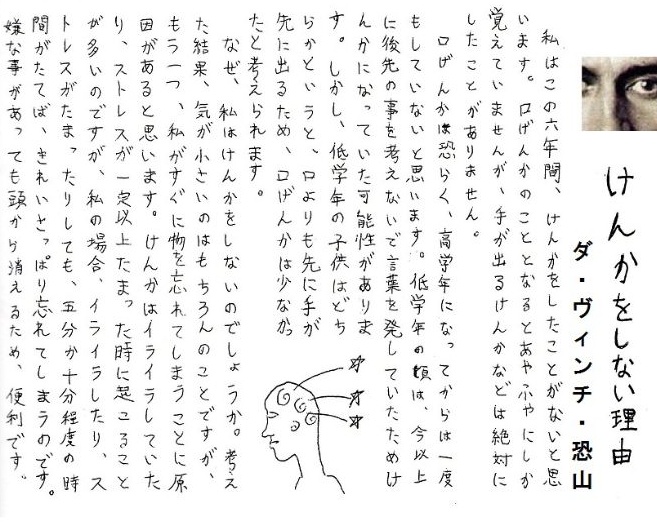 けんかをしない理由
ダ・ヴィンチ・恐山
私はこの六年間、けんかをしたことがないと思
います。口げんかのこととなるとあやふやにしか
覚えていませんが、手が出るけんかなどは絶対に
したことがありません。
口げんかは恐らく、高学年になってからは一度
もしていないと思います。低学年の頃は、今以上
に後先の事を考えないで言葉を発していたためけ
んかになっていた可能性がありま
す。しかし、低学年の子供はどち
らかというと、口よりも先に手が
先に出るため、口げんかは少なかっ
たと考えられます。
なぜ、私はけんかをしないのでしょうか。考え
た結果、気が小さいのはもちろんのことですが、
もう一つ、私がすぐに物を忘れてしまうことに原
因があると思います。けんかはイライラしていた
り、ストレスが一定以上たまった時に起こること
が多いのですが、私の場合、イライラしたり、ス
トレスがたまったりしても、五分か十分程度の時
間がたてば、きれいさっぱり忘れてしまうのです。
嫌な事があっても頭から消えるため、便利です。